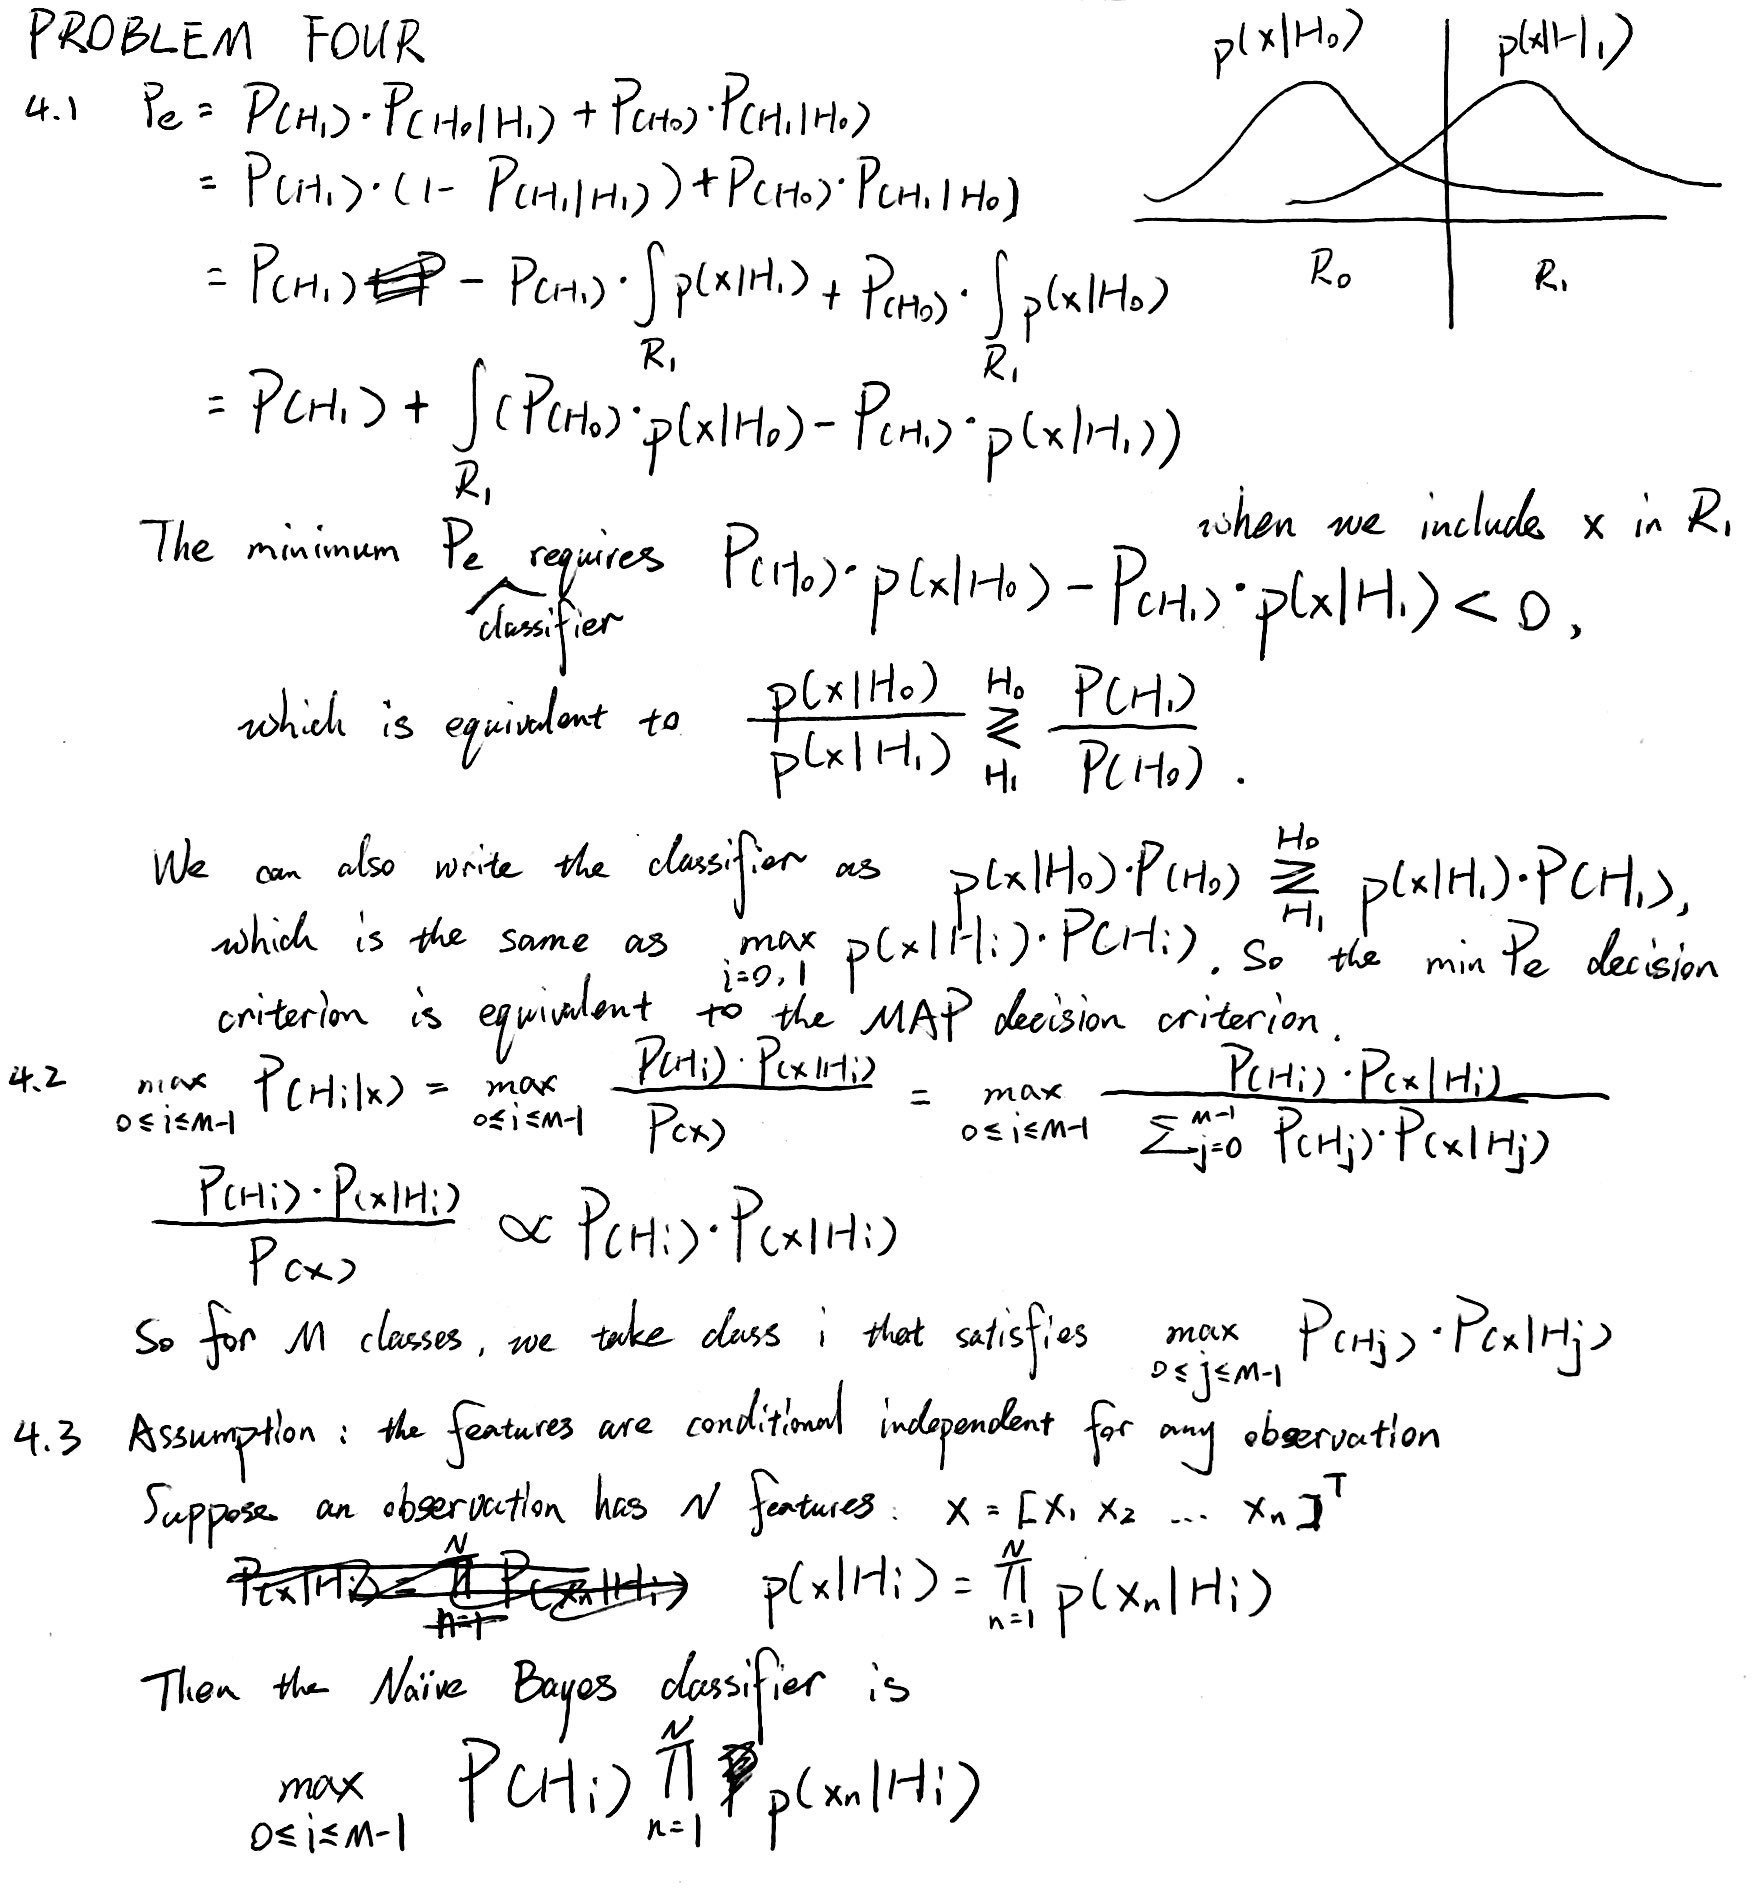 PROBLEM FOUR
p(x|H₀) p(x|H₁)
R₀ R₁
4.1 Pe = P(H₁)·P(H₀|H₁) + P(H₀)·P(H₁|H₀)
= P(H₁)·(1- P(H₁|H₁)) + P(H₀)·P(H₁|H₀)
= P(H₁) - P(H₁)·∫_R₁ p(x|H₁) + P(H₀)·∫_R₁ p(x|H₀)
= P(H₁) + ∫_R₁ (P(H₀)·p(x|H₀) - P(H₁)·p(x|H₁))
when we include x in R₁
The minimum Pe classifier requires P(H₀)·p(x|H₀) - P(H₁)·p(x|H₁) < 0,
which is equivalent to p(x|H₀)/p(x|H₁) ≷ (H₀ / H₁) P(H₁)/P(H₀).
We can also write the classifier as p(x|H₀)·P(H₀) ≷ (H₀ / H₁) p(x|H₁)·P(H₁),
which is the same as max i=0,1 p(x|Hi)·P(Hi). So the min Pe decision
criterion is equivalent to the MAP decision criterion.
4.2 max 0≤i≤M-1 P(Hi|x) = max 0≤i≤M-1 P(Hi)·P(x|Hi) / P(x) = max 0≤i≤M-1 P(Hi)·P(x|Hi) / Σ_{j=0}^{M-1} P(Hj)·P(x|Hj)
P(Hi)·P(x|Hi) / P(x) ∝ P(Hi)·P(x|Hi)
So for M classes, we take class i that satisfies max 0≤j≤M-1 P(Hj)·P(x|Hj)
4.3 Assumption: the features are conditional independent for any observation
Suppose an observation has N features: x = [x₁ x₂ ... xn]ᵀ
p(x|Hi) = ∏_{n=1}^{N} p(xn|Hi)
Then the Naïve Bayes classifier is
max 0≤i≤M-1 P(Hi) ∏_{n=1}^{N} p(xn|Hi)